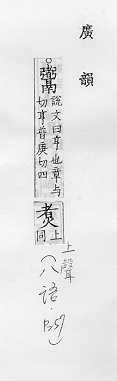 廣韻
說文曰亨也章与
切亨普庚切四
煑上同
上聲
(八語·